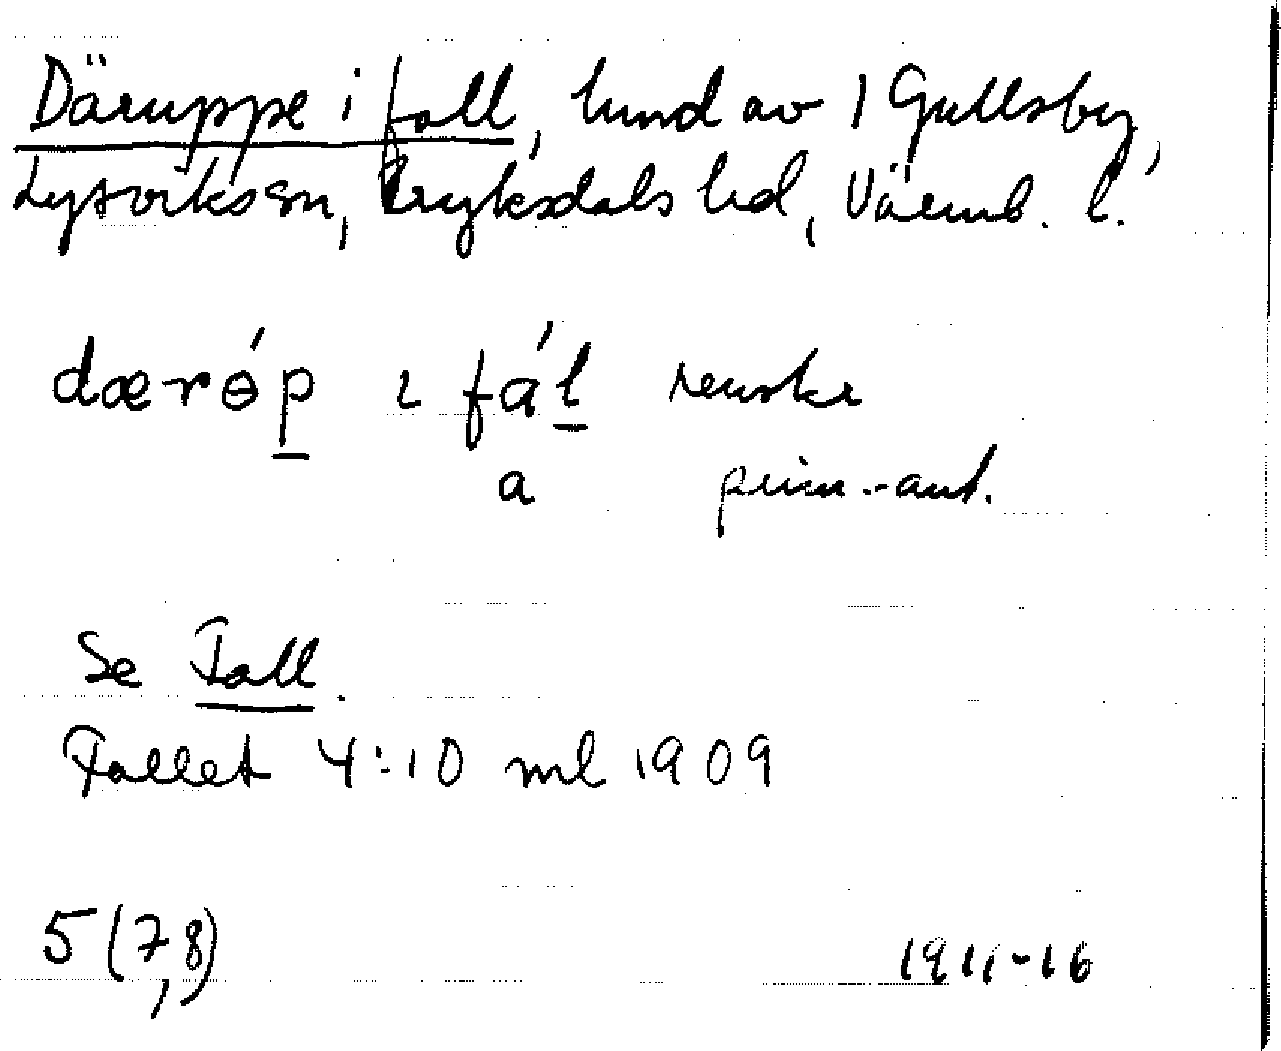 Däruppe i fall, lund av 1 Gullsby,
Lysviks sn, Fryksdals hd, Värml. l.
dærɵ́p ɩ fál
a prim.-ant.
Se Fall.
Fallet 4:10 ml 1909
5 (7,8) 1911-16